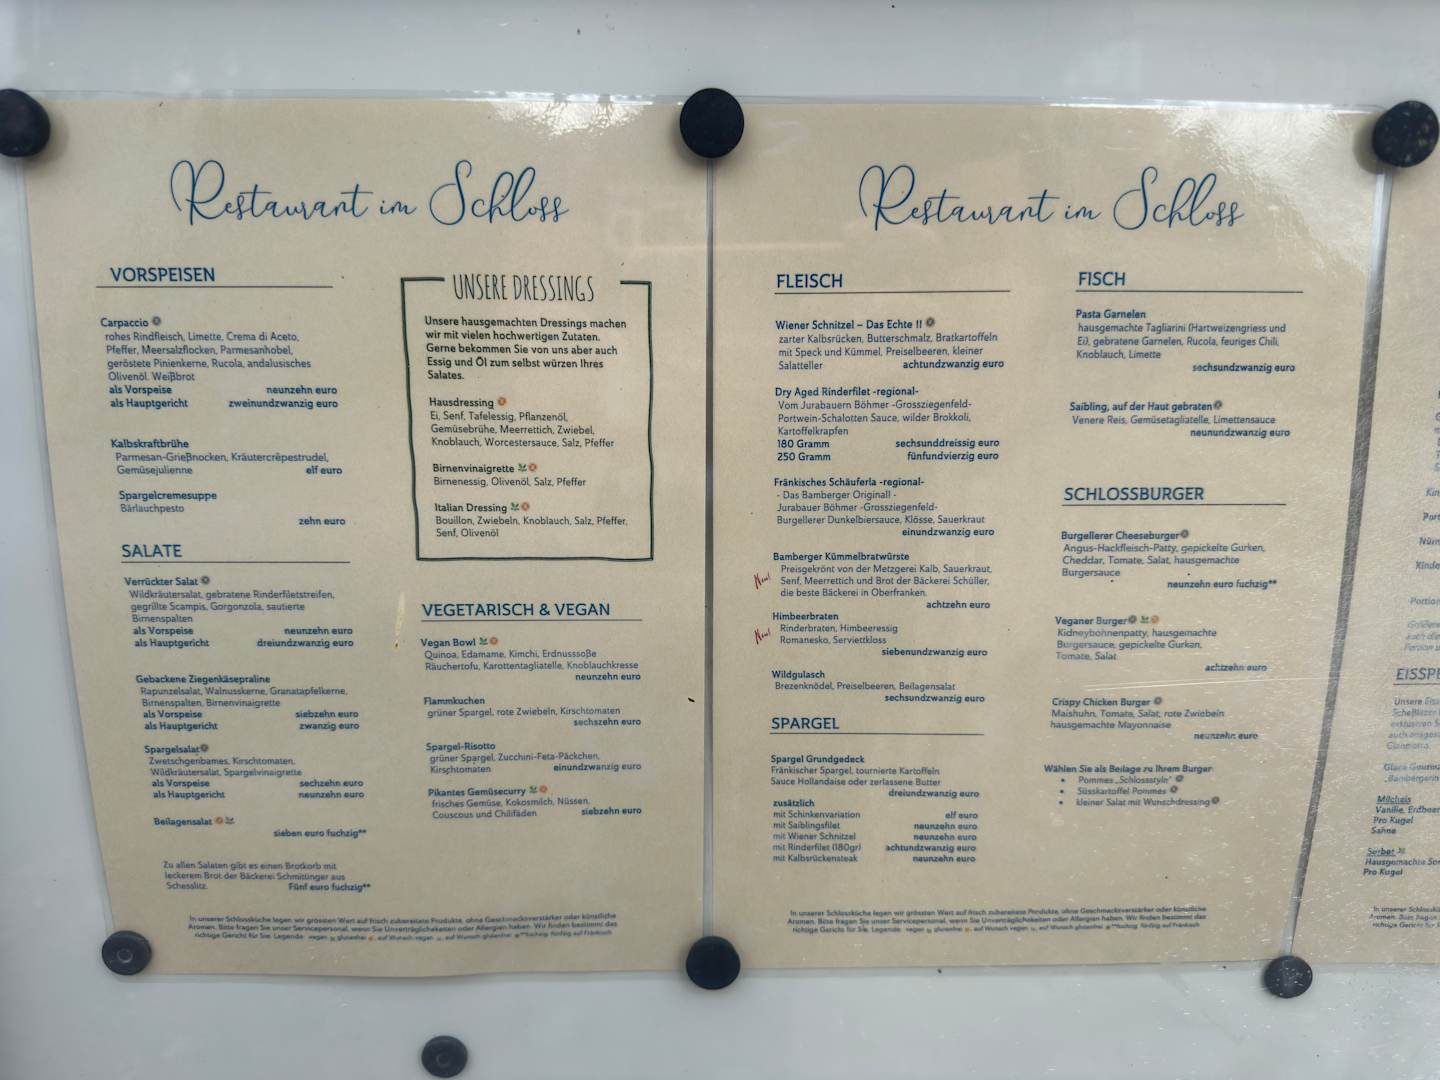 Restaurant im Schloss
VORSPEISEN
Carpaccio
rohes Rindfleisch, Limette, Crema di Aceto,
Pfeffer, Meersalzflocken, Parmesanhobel,
geröstete Pinienkerne, Rucola, andalusisches
Olivenöl. Weißbrot
als Vorspeise neunzehn euro
als Hauptgericht zweinundzwanzig euro
Kalbskraftbrühe
Parmesan-Grießnocken, Kräutercrêpestrudel,
Gemüsejulienne elf euro
Spargelcremesuppe
Bärlauchpesto
zehn euro
SALATE
Verrückter Salat
Wildkräutersalat, gebratene Rinderfiletstreifen,
gegrillte Scampis, Gorgonzola, sautierte
Birnenspalten
als Vorspeise neunzehn euro
als Hauptgericht dreiundzwanzig euro
Gebackene Ziegenkäsepraline
Rapunzelsalat, Walnusskerne, Granatapfelkerne,
Birnenspalten, Birnenvinaigrette
als Vorspeise siebzehn euro
als Hauptgericht zwanzig euro
Spargelsalat
Zwetschgenbames, Kirschtomaten,
Wildkräutersalat, Spargelvinaigrette
als Vorspeise sechzehn euro
als Hauptgericht neunzehn euro
Beilagensalat
sieben euro fuchzig**
Zu allen Salaten gibt es einen Brotkorb mit
leckerem Brot der Bäckerei Schmittinger aus
Schesslitz. Fünf euro fuchzig**
UNSERE DRESSINGS
Unsere hausgemachten Dressings machen
wir mit vielen hochwertigen Zutaten.
Gerne bekommen Sie von uns aber auch
Essig und Öl zum selbst würzen Ihres
Salates.
Hausdressing
Ei, Senf, Tafelessig, Pflanzenöl,
Gemüsebrühe, Meerrettich, Zwiebel,
Knoblauch, Worcestersauce, Salz, Pfeffer
Birnenvinaigrette
Birnenessig, Olivenöl, Salz, Pfeffer
Italian Dressing
Bouillon, Zwiebeln, Knoblauch, Salz, Pfeffer,
Senf, Olivenöl
VEGETARISCH & VEGAN
Vegan Bowl
Quinoa, Edamame, Kimchi, Erdnusssoße
Räuchertofu, Karottentagliatelle, Knoblauchkresse
neunzehn euro
Flammkuchen
grüner Spargel, rote Zwiebeln, Kirschtomaten
sechszehn euro
Spargel-Risotto
grüner Spargel, Zucchini-Feta-Päckchen,
Kirschtomaten einundzwanzig euro
Pikantes Gemüsecurry
frisches Gemüse, Kokosmilch, Nüssen,
Couscous und Chilifäden siebzehn euro
In unserer Schlossküche legen wir grössten Wert auf frisch zubereitete Produkte, ohne Geschmacksverstärker oder künstliche
Aromen. Bitte fragen Sie unser Servicepersonal, wenn Sie Unverträglichkeiten oder Allergien haben. Wir finden bestimmt das
richtige Gericht für Sie. Legende: vegan glutenfrei auf Wunsch vegan auf Wunsch glutenfrei **fuchzig fünfzig auf Fränkisch
Restaurant im Schloss
FLEISCH
Wiener Schnitzel – Das Echte !!
zarter Kalbsrücken, Butterschmalz, Bratkartoffeln
mit Speck und Kümmel, Preiselbeeren, kleiner
Salatteller achtundzwanzig euro
Dry Aged Rinderfilet -regional-
Vom Jurabauern Böhmer -Grossziegenfeld-
Portwein-Schalotten Sauce, wilder Brokkoli,
Kartoffelkrapfen
180 Gramm sechsunddreissig euro
250 Gramm fünfundvierzig euro
Fränkisches Schäuferla -regional-
- Das Bamberger Original! -
Jurabauer Böhmer -Grossziegenfeld-
Burgellerer Dunkelbiersauce, Klösse, Sauerkraut
einundzwanzig euro
Bamberger Kümmelbratwürste
New! Preisgekrönt von der Metzgerei Kalb, Sauerkraut,
Senf, Meerrettich und Brot der Bäckerei Schüller,
die beste Bäckerei in Oberfranken.
achtzehn euro
Himbeerbraten
New! Rinderbraten, Himbeeressig
Romanesko, Serviettkloss
siebenundzwanzig euro
Wildgulasch
Brezenknödel, Preiselbeeren, Beilagensalat
sechsundzwanzig euro
SPARGEL
Spargel Grundgedeck
Fränkischer Spargel, tournierte Kartoffeln
Sauce Hollandaise oder zerlassene Butter
dreiundzwanzig euro
zusätzlich
mit Schinkenvariation elf euro
mit Saiblingsfilet neunzehn euro
mit Wiener Schnitzel neunzehn euro
mit Rinderfilet (180gr) achtundzwanzig euro
mit Kalbsrückensteak neunzehn euro
FISCH
Pasta Garnelen
hausgemachte Tagliarini (Hartweizengriess und
Ei), gebratene Garnelen, Rucola, feuriges Chili,
Knoblauch, Limette
sechsundzwanzig euro
Saibling, auf der Haut gebraten
Venere Reis, Gemüsetagliatelle, Limettensauce
neunundzwanzig euro
SCHLOSSBURGER
Burgellerer Cheeseburger
Angus-Hackfleisch-Patty, gepickelte Gurken,
Cheddar, Tomate, Salat, hausgemachte
Burgersauce
neunzehn euro fuchzig**
Veganer Burger
Kidneybohnenpatty, hausgemachte
Burgersauce, gepickelte Gurkan,
Tomate, Salat
achtzehn euro
Crispy Chicken Burger
Maishuhn, Tomate, Salat, rote Zwiebeln
hausgemachte Mayonnaise
neunzehn euro
Wählen Sie als Beilage zu Ihrem Burger:
• Pommes „Schlossstyln"
• Süsskartoffel Pommes
• kleiner Salat mit Wunschdressing
In unserer Schlossküche legen wir grössten Wert auf frisch zubereitete Produkte, ohne Geschmacksverstärker oder künstliche
Aromen. Bitte fragen Sie unser Servicepersonal, wenn Sie Unverträglichkeiten oder Allergien haben. Wir finden bestimmt das
richtige Gericht für Sie. Legende: vegan glutenfrei auf Wunsch vegan auf Wunsch glutenfrei **fuchzig fünfzig auf Fränkisch
EISSPE
Unsere Eis
Milcheis
Vanille, Erdbeer
Pro Kugel
Sahne
Sorbet
Hausgemachte Sor
Pro Kugel
In unserer Schlosskü
richtige Gericht für S